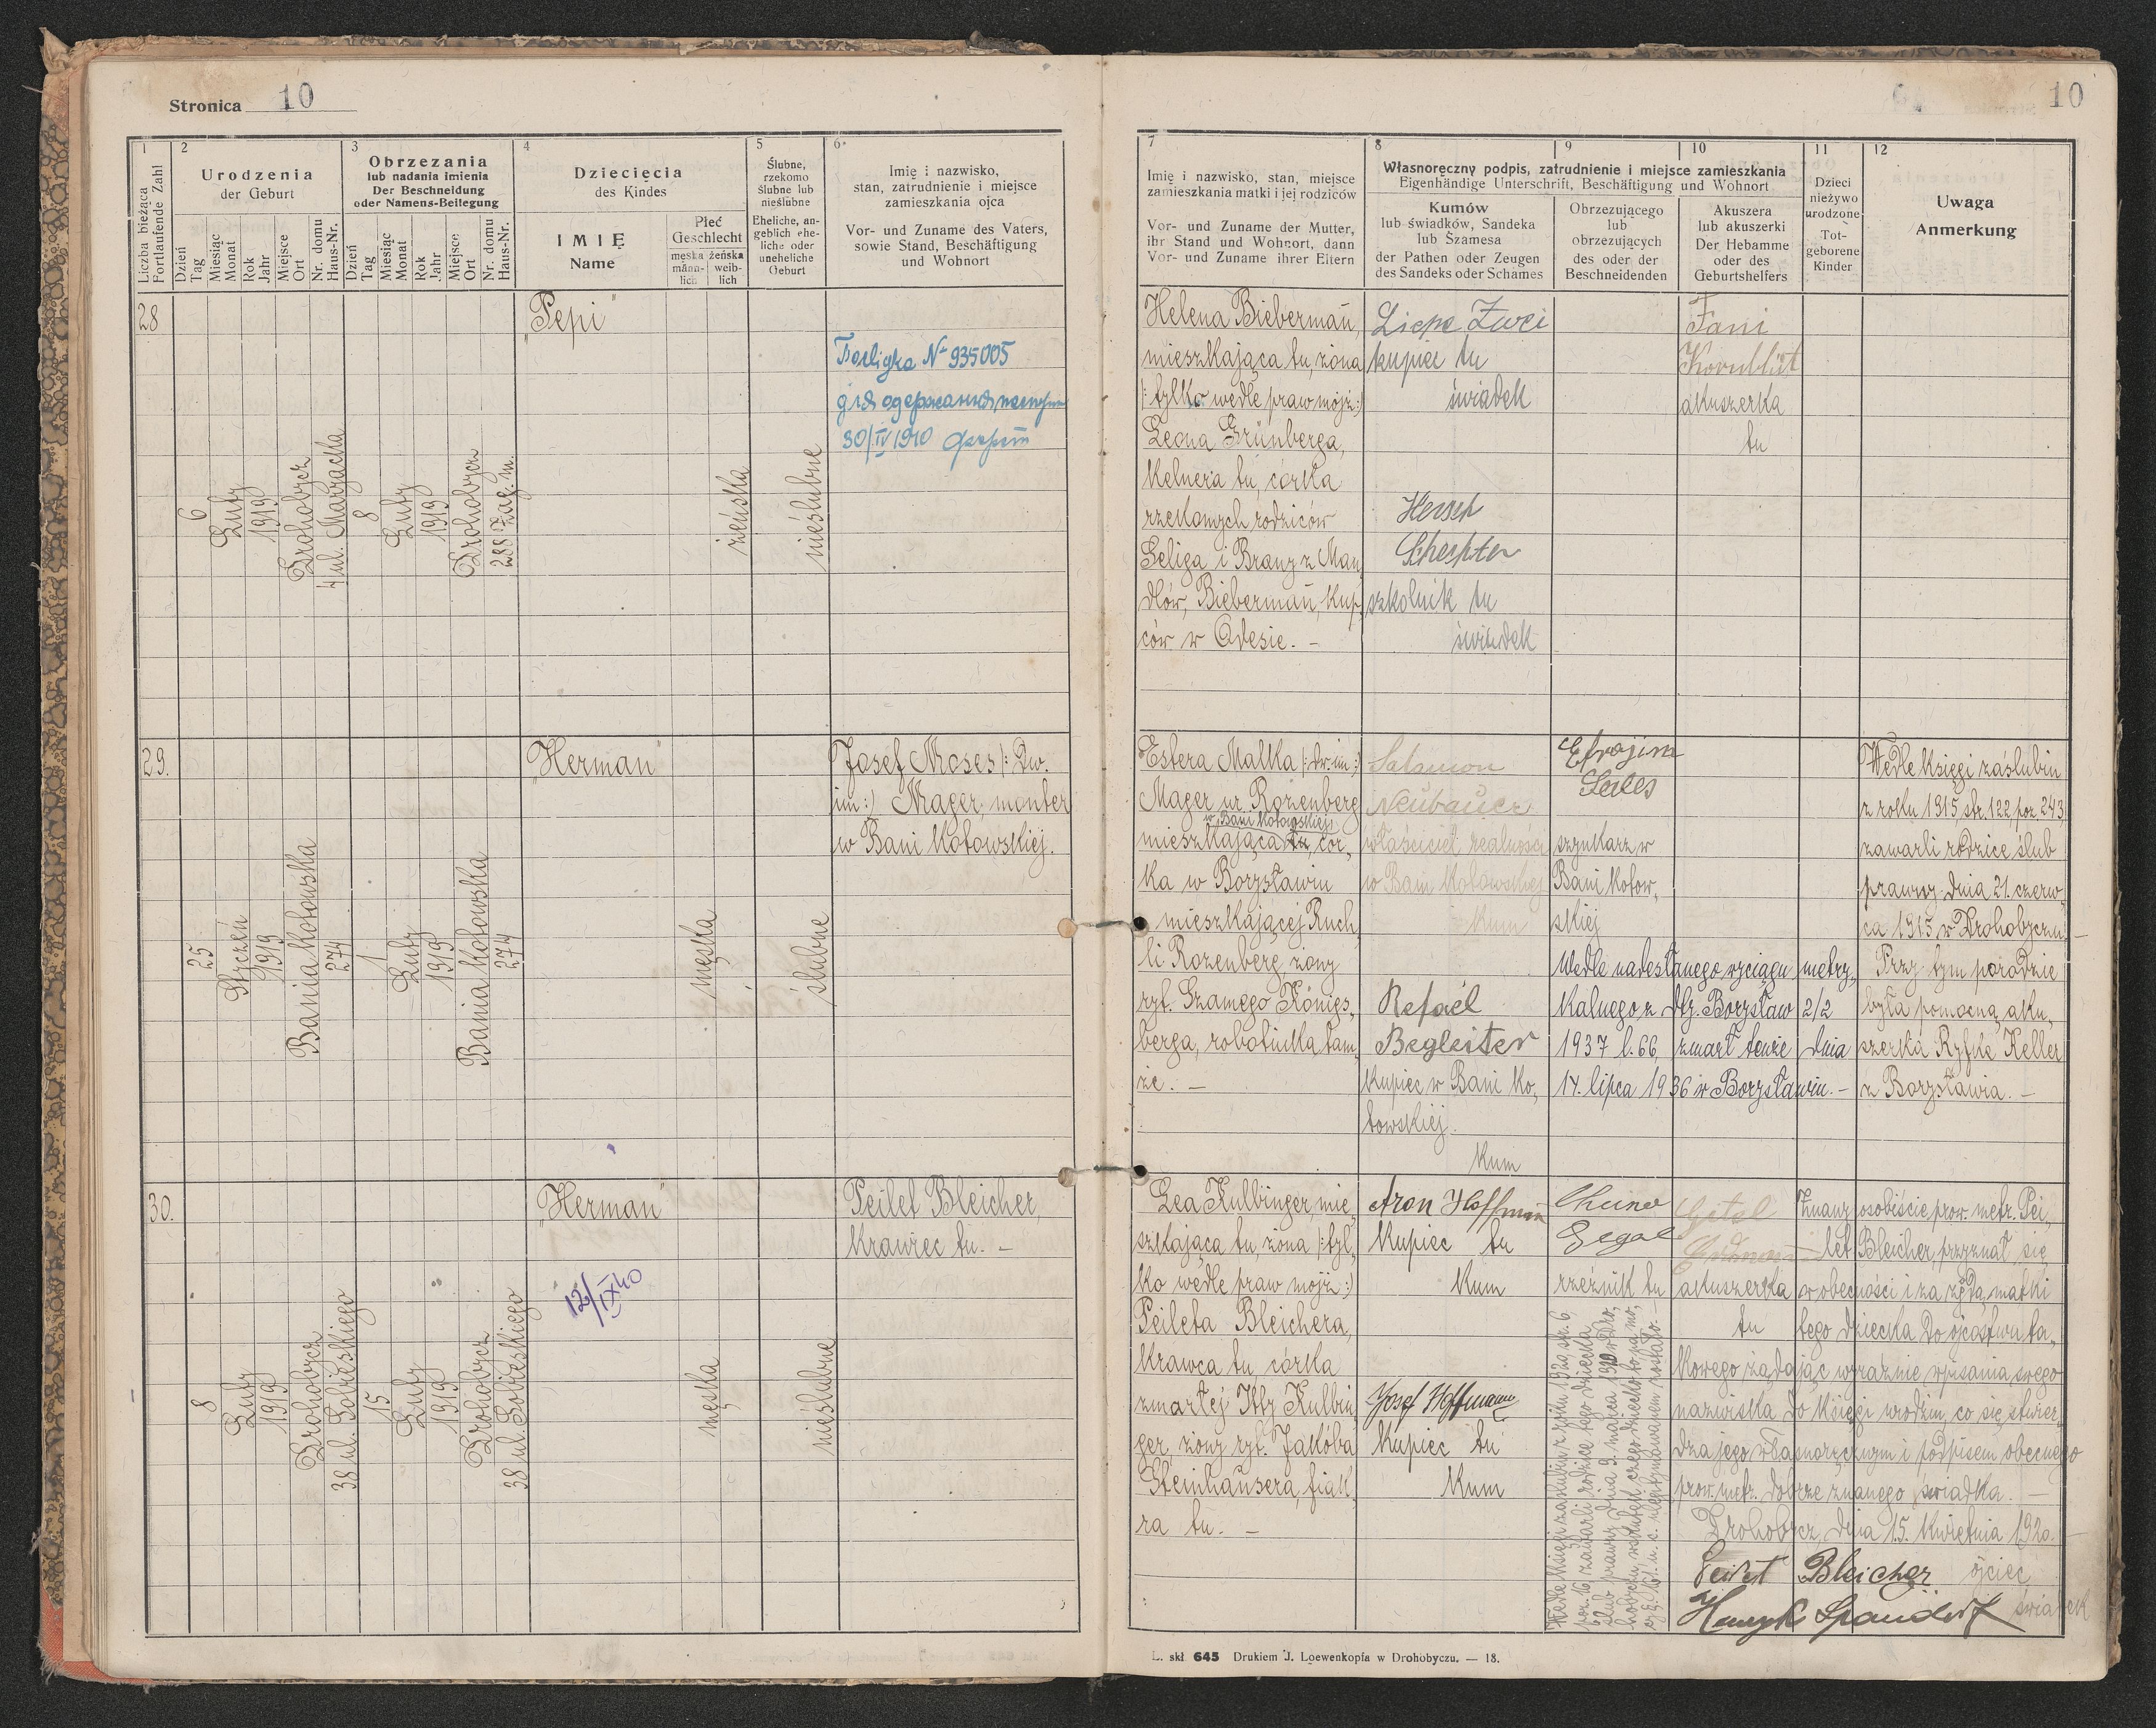 Stronica 10
10
1
Liczba bieżąca
Fortlaufende Zahl
2
Urodzenia
der Geburt
Dzień
Tag
Miesiąc
Monat
Rok
Jahr
Miejsce
Ort
Nr. domu
Haus-Nr.
3
Obrzezania
lub nadania imienia
Der Beschneidung
oder Namens-Beilegung
Dzień
Tag
Miesiąc
Monat
Rok
Jahr
Miejsce
Ort
Nr. domu
Haus-Nr.
4
Dziecięcia
des Kindes
IMIĘ
Name
Płeć
Geschlecht
męska
männ-
lich
żeńska
weib-
lich
5
Ślubne,
rzekomo
ślubne lub
nieślubne
Eheliche, an-
geblich ehe-
liche oder
uneheliche
Geburt
6
Imię i nazwisko,
stan, zatrudnienie i miejsce
zamieszkania ojca
Vor- und Zuname des Vaters,
sowie Stand, Beschäftigung
und Wohnort
7
Imię i nazwisko, stan, miejsce
zamieszkania matki i jej rodziców
Vor- und Zuname der Mutter,
ihr Stand und Wohnort, dann
Vor- und Zuname ihrer Eltern
8
9
10
Własnoręczny podpis, zatrudnienie i miejsce zamieszkania
Eigenhändige Unterschrift, Beschäftigung und Wohnort
Kumów
lub świadków, Sandeka
lub Szamesa
der Pathen oder Zeugen
des Sandeks oder Schames
Obrzezującego
lub
obrzezujących
des oder der
Beschneidenden
Akuszera
lub akuszerki
Der Hebamme
oder des
Geburtshelfers
11
Dzieci
nieżywo
urodzone
Tot-
geborene
Kinder
12
Uwaga
Anmerkung
28
6
Luty
1919
Drohobycz
4 ul. Margacka
8
Luty
1919
Drohobycz
288 Zag. m.
"Pepi"
żeńska
nieślubne
№ 935005
30/IV 1940
Helena Biebermañ,
mieszkająca tu, żona
/: tylko wedle praw mojż :/
Leona Grünberga,
kelnera tu, córka
rzekomych rodziców
Seliga i Brany z Man
dlów, Biebermañ, kup,
ców w Odesie. –
Liepe Zwei
kupiec tu
świadek
Hersch
szkolnik tu
świadek
Fani
Kornblüt
akuszerka
tu
29.
25
Styczeń
1919
Bania Kotowska
274
1
Luty
1919
Bania Kotowska
274
"Herman"
męska
ślubne
Josef Moses /: Dw.
im :/ Mager, monter
w Bani Kotowskiej.
Estera Malka /: Dw. im :/
Mager ur. Rozenberg
w Bani Kotowskiej
mieszkająca tu, cór,
ka w Borysławiu
mieszkającej Ruch,
li Rozenberg, żony
ryt. Szamego Königs,
berga, robotnika tam,
że. –
Salamon
Neubauer
właściciel realności
w Bani Kotowskiej
kum
Refael
Begleiter
Kupiec w Bani Ko,
towskiej.
Kum
Efrojim
Seiles
szynkarz w
Bani Kotow,
skiej
Wedle nadesłanego wyciągu metry,
kalnego z dtg. Borysław 2/2
1937 l. 66, zmarł tenże dnia
14. lipca 1936 w Borysławiu. –
Wedle księgi zaślubin
z roku 1915, str. 122, poz. 243,
zawarli rodzice ślub
prawny dnia 21. czerw,
ca 1915 w Drohobyczu. –
Przy tym porodzie
była pomocną aku,
szerka Ryfke Keller
z Borysławia. –
30.
8
Luty
1919
Drohobycz
38 ul. Sobieskiego
15
Luty
1919
Drohobycz
38 ul. Sobieskiego
"Herman"
12/IX 40
męska
nieślubne
Peilet Bleicher,
krawiec tu. –
Lea Kulbinger, mie,
szkająca tu, żona /: tyl,
ko wedle praw mojż :/
Peileta Bleichera,
krawca tu, córka
zmarłej Itty Kulbin,
ger, żony ryt. Jakóba
Steinhausera, fiak,
ra tu. –
Aron Hoffman
Kupiec tu
Kum
Josef Hoffmann
Kupiec tu
Kum
Segal
rzeźnik tu
Gitel
akuszerka
tu
Wedle księgi zaślubin z roku 1920 str. 6,
poz. 16, zawarli rodzice tego dziecka
ślub prawny dnia 9. marca 1920 w Dro,
hobyczu, wskutek czego dziecko to po my,
śli § 161 u. c. legitymowanem zostało. –
Znany osobiście prow. metr. Pei,
let Bleicher, przyznał się
w obecności i za zgodą matki
tego dziecka do ojcostwa ta,
kowego żądając wyraźnie wpisania swego
nazwiska do księgi urodzin, co się stwier,
dza jego własnoręcznym i podpisem obecnego
prow. metr. dobrze znanego świadka. –
Drohobycz, dnia 15. kwietnia 1920. –
Peilet Bleicher ojciec
Henryk Spandorf świadek
L. skł 645 Drukiem J. Loewenkopfa w Drohobyczu. — 18.